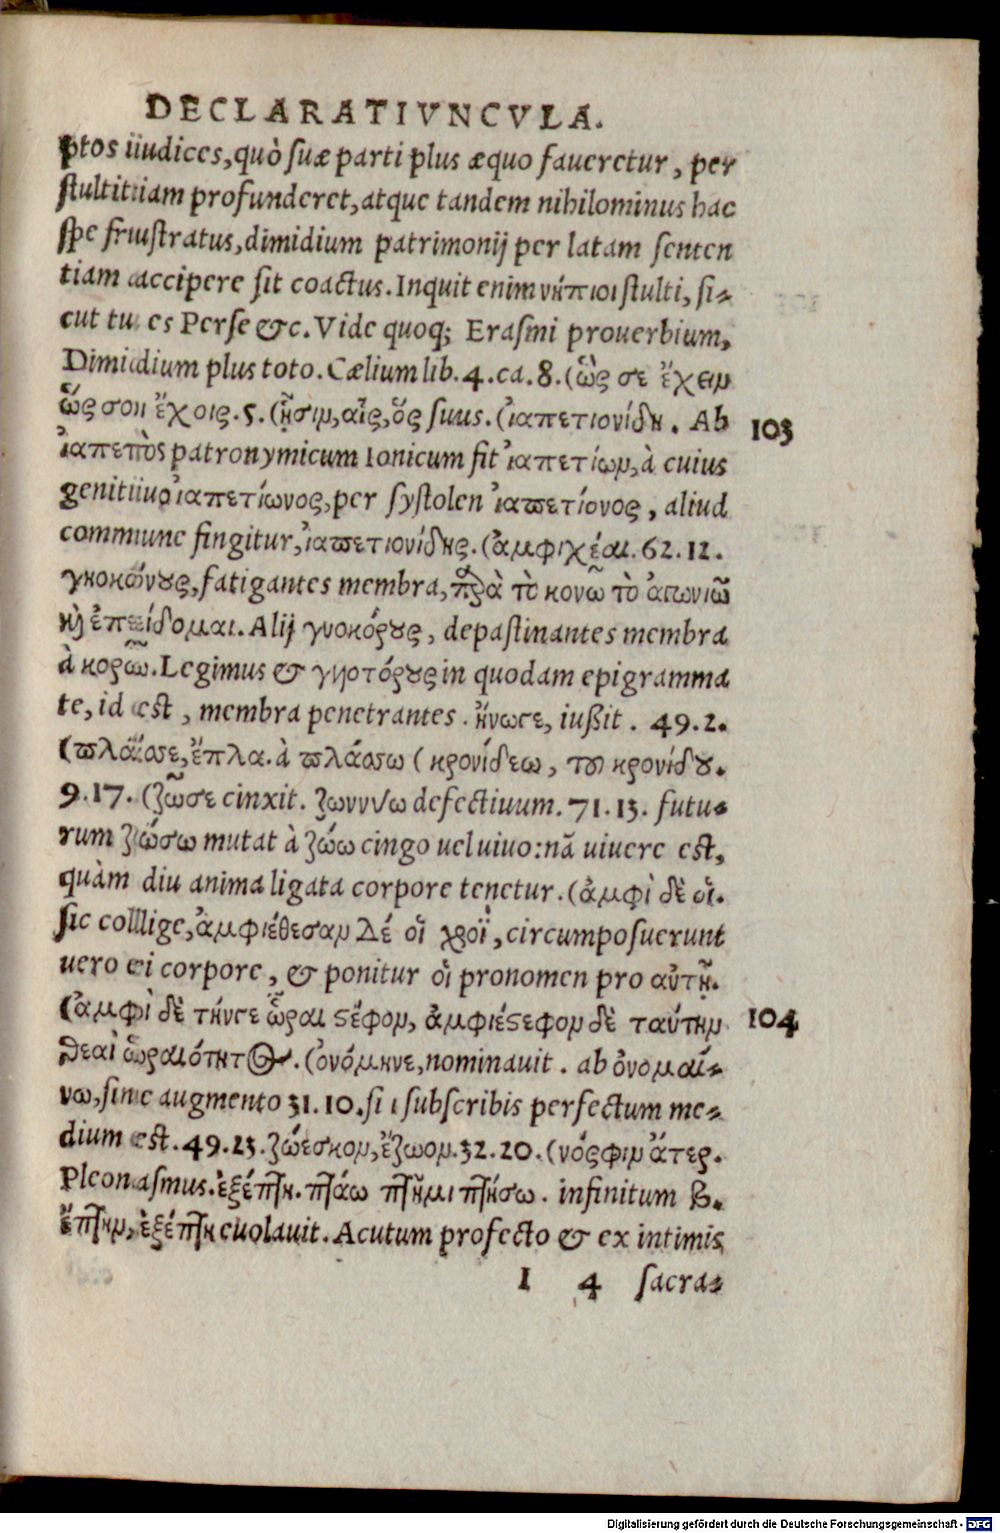 DECLARATIVNCVLA.
ptos iudices, quò suæ parti plus æquo faueretur, per
stultitiam profunderet, atque tandem nihilominus hac
spe frustratus, dimidium patrimonij per latam senten
tiam accipere sit coactus. Inquit enim νήπιοι stulti, si-
cut tu es Perse &c. Vide quoq; Erasmi prouerbium,
Dimidium plus toto. Cælium lib. 4. ca. 8. (ὥς σε ἔχειν
ὥς σοι ἔχοις. 5. (ᾗσιν, αἷς, ὅς suus. (ἰαπετιονίδη. Ab
103
ἰαπετὸς patronymicum Ionicum fit ἰαπετίων, à cuius
genitiuo ἰαπετίωνος, per systolen ἰαπετίονος, aliud
commune fingitur, ἰαπετιονίδης. (ἀμφιχέαι. 62. 12.
γυοκόνους, fatigantes membra, παρὰ τὸ κονῶ τὸ
καὶ Alij γυοκόρους, depastinantes membra
à κορῶ. Legimus & in quodam epigramma
te, id est, membra penetrantes. ἤνωγε, iußit. 49. 2.
(πλάσσε, ἔπλα. à πλάσσω (κρονίδεω, τοῦ κρονίδου.
9. 17. (ζῶσε cinxit. ζωννύω defectiuum. 71. 13. futu-
rum ζώσω mutat à ζώω cingo uel uiuo: nã uiuere est,
quàm diu anima ligata corpore tenetur. (ἀμφὶ δὲ οἱ.
sic collige, ἀμφιέθεσαν Δέ οἱ χροῒ, circumposuerunt
uero ei corpore, & ponitur οἱ pronomen pro αὐτῇ.
(ἀμφὶ δὲ τήνγε ὧραι στέφον, ἀμφιέστεφον δὲ ταύτην
104
θεαὶ ὡραιότητος. (ὀνόμηνε, nominauit. ab ὀνομαί-
νω, sine augmento 31. 10. si ι subscribis perfectum me-
dium est. 49. 23. ζώεσκον, ἔζωον. 32. 20. (νόσφιν ἄτερ.
Pleonasmus. ἐξέπτη. πτάω πτῆμι πτήσω. infinitum β.
ἔπτην, ἐξέπτη euolauit. Acutum profecto & ex intimis
I 4 sacra-
Digitalisierung gefördert durch die Deutsche Forschungsgemeinschaft - DFG